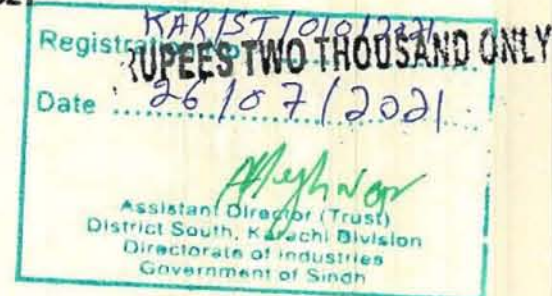 Registration No KAR/ST/010/2021
RUPEES TWO THOUSAND ONLY
Date 26/07/2021
Assistant Director (Trust)
District South, Karachi Division
Directorate of Industries
Government of Sindh